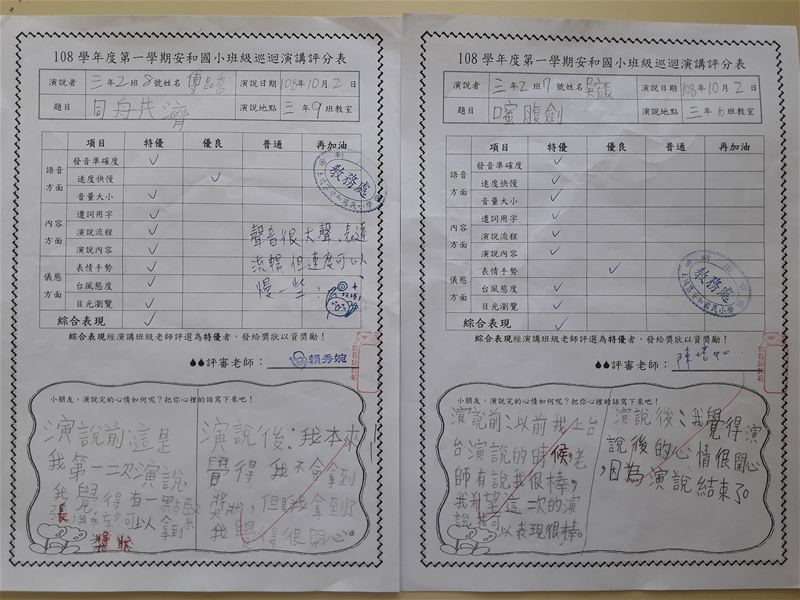 108 學年度第一學期安和國小班級巡迴演講評分表
演說者 三年2班8號姓名 演說日期 108年10月2日
題目 同舟共濟 演說地點 三年9班教室
項目 特優 優良 普通 再加油
語音方面
發音準確度 ✓
速度快慢 ✓
音量大小 ✓
內容方面
遣詞用字 ✓
演說流程 ✓
演說內容 ✓
儀態方面
表情手勢 ✓
台風態度 ✓
目光瀏覽 ✓
綜合表現 ✓
教務處
聲音很大聲,表達
流暢,但速度可以
慢一些!
綜合表現經演講班級老師評選為特優者,發給獎狀以資獎勵!
評審老師: 賴秀婉
小朋友,演說完的心情如何呢?把你心裡的話寫下來吧!
演說前:這是
我第一次演說
我覺得有一點
可以拿到
獎狀
演說後:我本來
覺得我不會拿到
獎狀,但是我拿到了
我覺得很開心。
108 學年度第一學期安和國小班級巡迴演講評分表
演說者 三年2班7號姓名 演說日期 108年10月2日
題目 口蜜腹劍 演說地點 三年10班教室
項目 特優 優良 普通 再加油
語音方面
發音準確度 ✓
速度快慢 ✓
音量大小 ✓
內容方面
遣詞用字 ✓
演說流程 ✓
演說內容 ✓
儀態方面
表情手勢 ✓
台風態度 ✓
目光瀏覽 ✓
綜合表現 ✓
教務處
綜合表現經演講班級老師評選為特優者,發給獎狀以資獎勵!
評審老師:
小朋友,演說完的心情如何呢?把你心裡的話寫下來吧!
演說前:以前我上台
台演說的時候,老
師有說我很棒,
我希望這一次的演
說我可以表現很棒。
演說後:我覺得演
說後的心情很開心
,因為演說結束了。